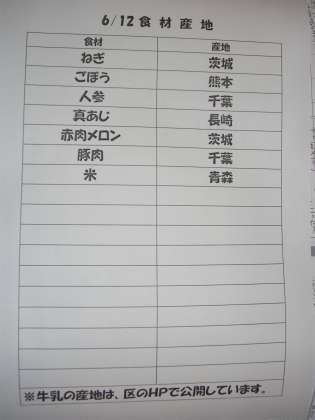 6/12 食材産地
食材 産地
ねぎ 茨城
ごぼう 熊本
人参 千葉
真あじ 長崎
赤肉メロン 茨城
豚肉 千葉
米 青森
※牛乳の産地は、区のHPで公開しています。